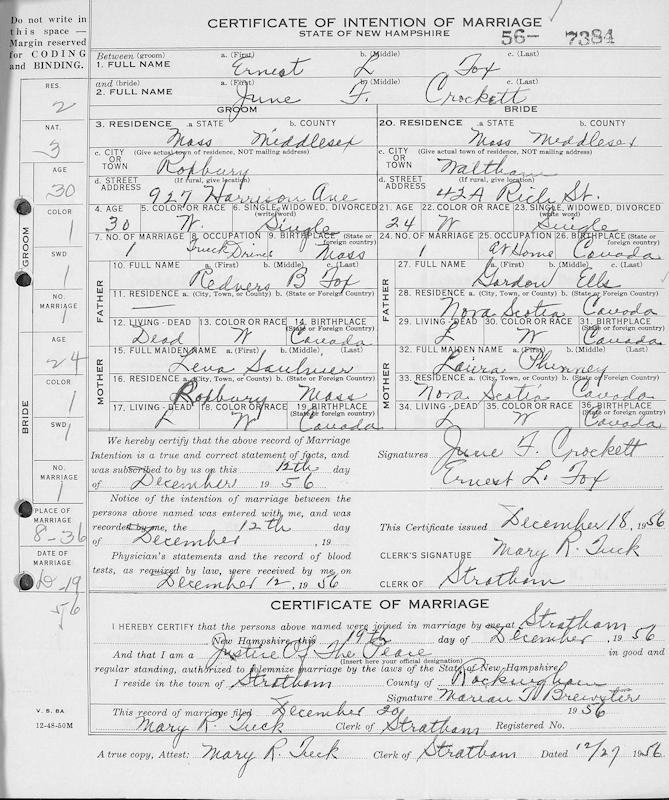 Do not write in
this space —
Margin reserved
for CODING
and BINDING.
CERTIFICATE OF INTENTION OF MARRIAGE
STATE OF NEW HAMPSHIRE
56- 7384
Between (groom) a. (First) b. (Middle) c. (Last)
1. FULL NAME Ernest L Fox
and (bride) a. (First) b. (Middle) c. (Last)
2. FULL NAME June F. Crockett
GROOM BRIDE
3. RESIDENCE .a STATE b. COUNTY 20. RESIDENCE .a STATE b. COUNTY
Mass Middlesex Mass Middlesex
c. CITY OR TOWN (Give actual town of residence, NOT mailing address) Roxbury c. CITY OR TOWN (Give actual town of residence, NOT mailing address) Waltham
d. STREET ADDRESS (If rural, give location) 927 Harrison Ave d. STREET ADDRESS (If rural, give location) 42A St.
4. AGE 5. COLOR OR RACE 6. SINGLE, WIDOWED, DIVORCED (write word) 21. AGE 22. COLOR OR RACE 23. SINGLE, WIDOWED, DIVORCED (write word)
30 W. Single 24 W Single
7. NO. OF MARRIAGE 8. OCCUPATION 9. BIRTHPLACE (State or foreign country) 24. NO. OF MARRIAGE 25. OCCUPATION 26. BIRTHPLACE (State or foreign country)
1 Truck Driver Mass 1 At Home Canada
10. FULL NAME a. (First) b. (Middle) c. (Last) 27. FULL NAME a. (First) b. (Middle) c. (Last)
Redvers B Fox Gordon Ells
11. RESIDENCE a. (City, Town, or County) b. (State or Foreign Country) 28. RESIDENCE a. (City, Town, or County) b. (State or Foreign Country)
— Nova Scotia Canada
12. LIVING - DEAD 13. COLOR OR RACE 14. BIRTHPLACE (State or foreign country) 29. LIVING - DEAD 30. COLOR OR RACE 31. BIRTHPLACE (State or foreign country)
Dead W Canada L W Canada
15. FULL MAIDEN NAME a. (First) b. (Middle). (Last) 32. FULL MAIDEN NAME a. (First) b. (Middle). c. (Last)
Lena Saulnier Laura Phinney
16. RESIDENCE a. (City, Town, or County) b. (State or Foreign Country) 33. RESIDENCE a. (City, Town, or County) b. (State or Foreign Country)
Roxbury Mass Nova Scotia Canada
17. LIVING - DEAD 18. COLOR OR RACE 19. BIRTHPLACE (State or foreign country) 34. LIVING - DEAD 35. COLOR OR RACE 36. BIRTHPLACE (State or foreign country)
L W Canada L W Canada
FATHER
MOTHER
FATHER
MOTHER
We hereby certify that the above record of Marriage
Intention is a true and correct statement of facts, and
was subscribed to by us on this 12th day
of December 19 56
Signatures June F. Crockett
Ernest L. Fox
Notice of the intention of marriage between the
persons above named was entered with me, and was
recorded by me, the 12th day
of December , 19
Physician's statements and the record of blood
tests, as required by law, were received by me on
December 12, 1956
This Certificate issued December 18, 1956
CLERK'S SIGNATURE Mary R. Tuck
CLERK OF Stratham
CERTIFICATE OF MARRIAGE
I HEREBY CERTIFY that the persons above named were joined in marriage by me at Stratham
New Hampshire this 19th day of December , 1956
And that I am a Justice Of The Peace in good and
(Insert here your official designation)
regular standing, authorized to solemnize marriage by the laws of the State of New Hampshire
I reside in the town of Stratham County of Rockingham
Signature Marian T. Brewster
This record of marriage filed December 20 1956
Mary R. Tuck Clerk of Stratham Registered No.
A true copy, Attest: Mary R. Tuck Clerk of Stratham Dated 12/27 1956
RES.
2
NAT.
3
AGE
30
COLOR
1
SWD
1
NO. MARRIAGE
1
GROOM
AGE
24
COLOR
1
SWD
1
NO. MARRIAGE
1
BRIDE
PLACE OF MARRIAGE
8-36
DATE OF MARRIAGE
D-19
56
V. S. 8A
12-48-50M